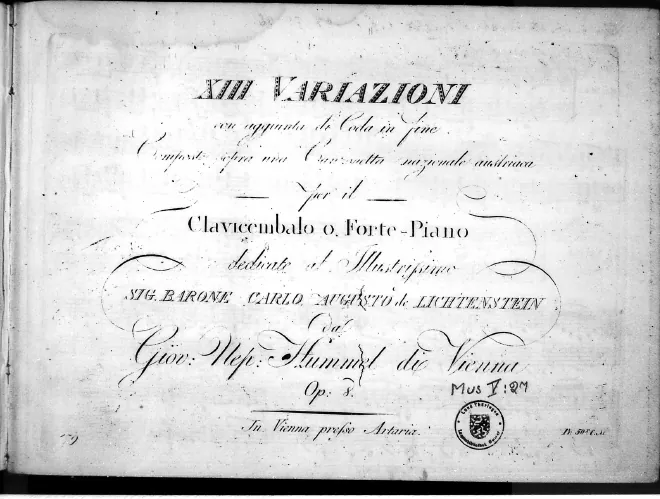 XIII VARIAZIONI
con aggiunta di Coda in fine
Composte sopra una Canzonetta nazionale austriaca
per il
Clavicembalo o Forte-Piano
dedicate al Illustrissimo
SIG. BARONE CARLO AUGUSTO de LICHTENSTEIN
da
Giov: Nep: Hummel di Vienna
Op: 8.
Mus V:27
In Vienna presso Artaria.